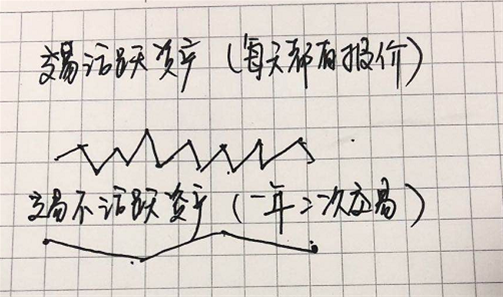 交易活跃资产（每天都有报价）
交易不活跃资产（一年二次交易）